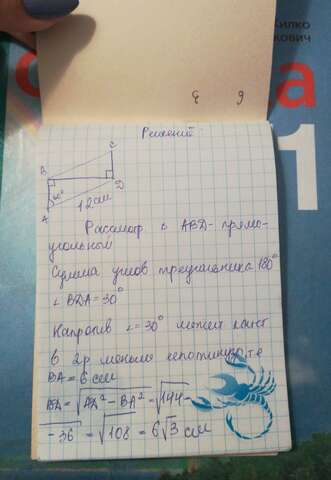 илко
кович
а
1
Решение:
B
C
60°
A
D
12см
Рассмотр △ ABD - прямо-
угольный
Сумма углов треугольника 180°
∠ BDA = 30°
Напротив ∠ = 30° лежит катет
в 2р меньше гипотенузы, т.е
BA = 6 см
BD = √AD² - BA² = √144 -
- 36 = √108 = 6√3 см